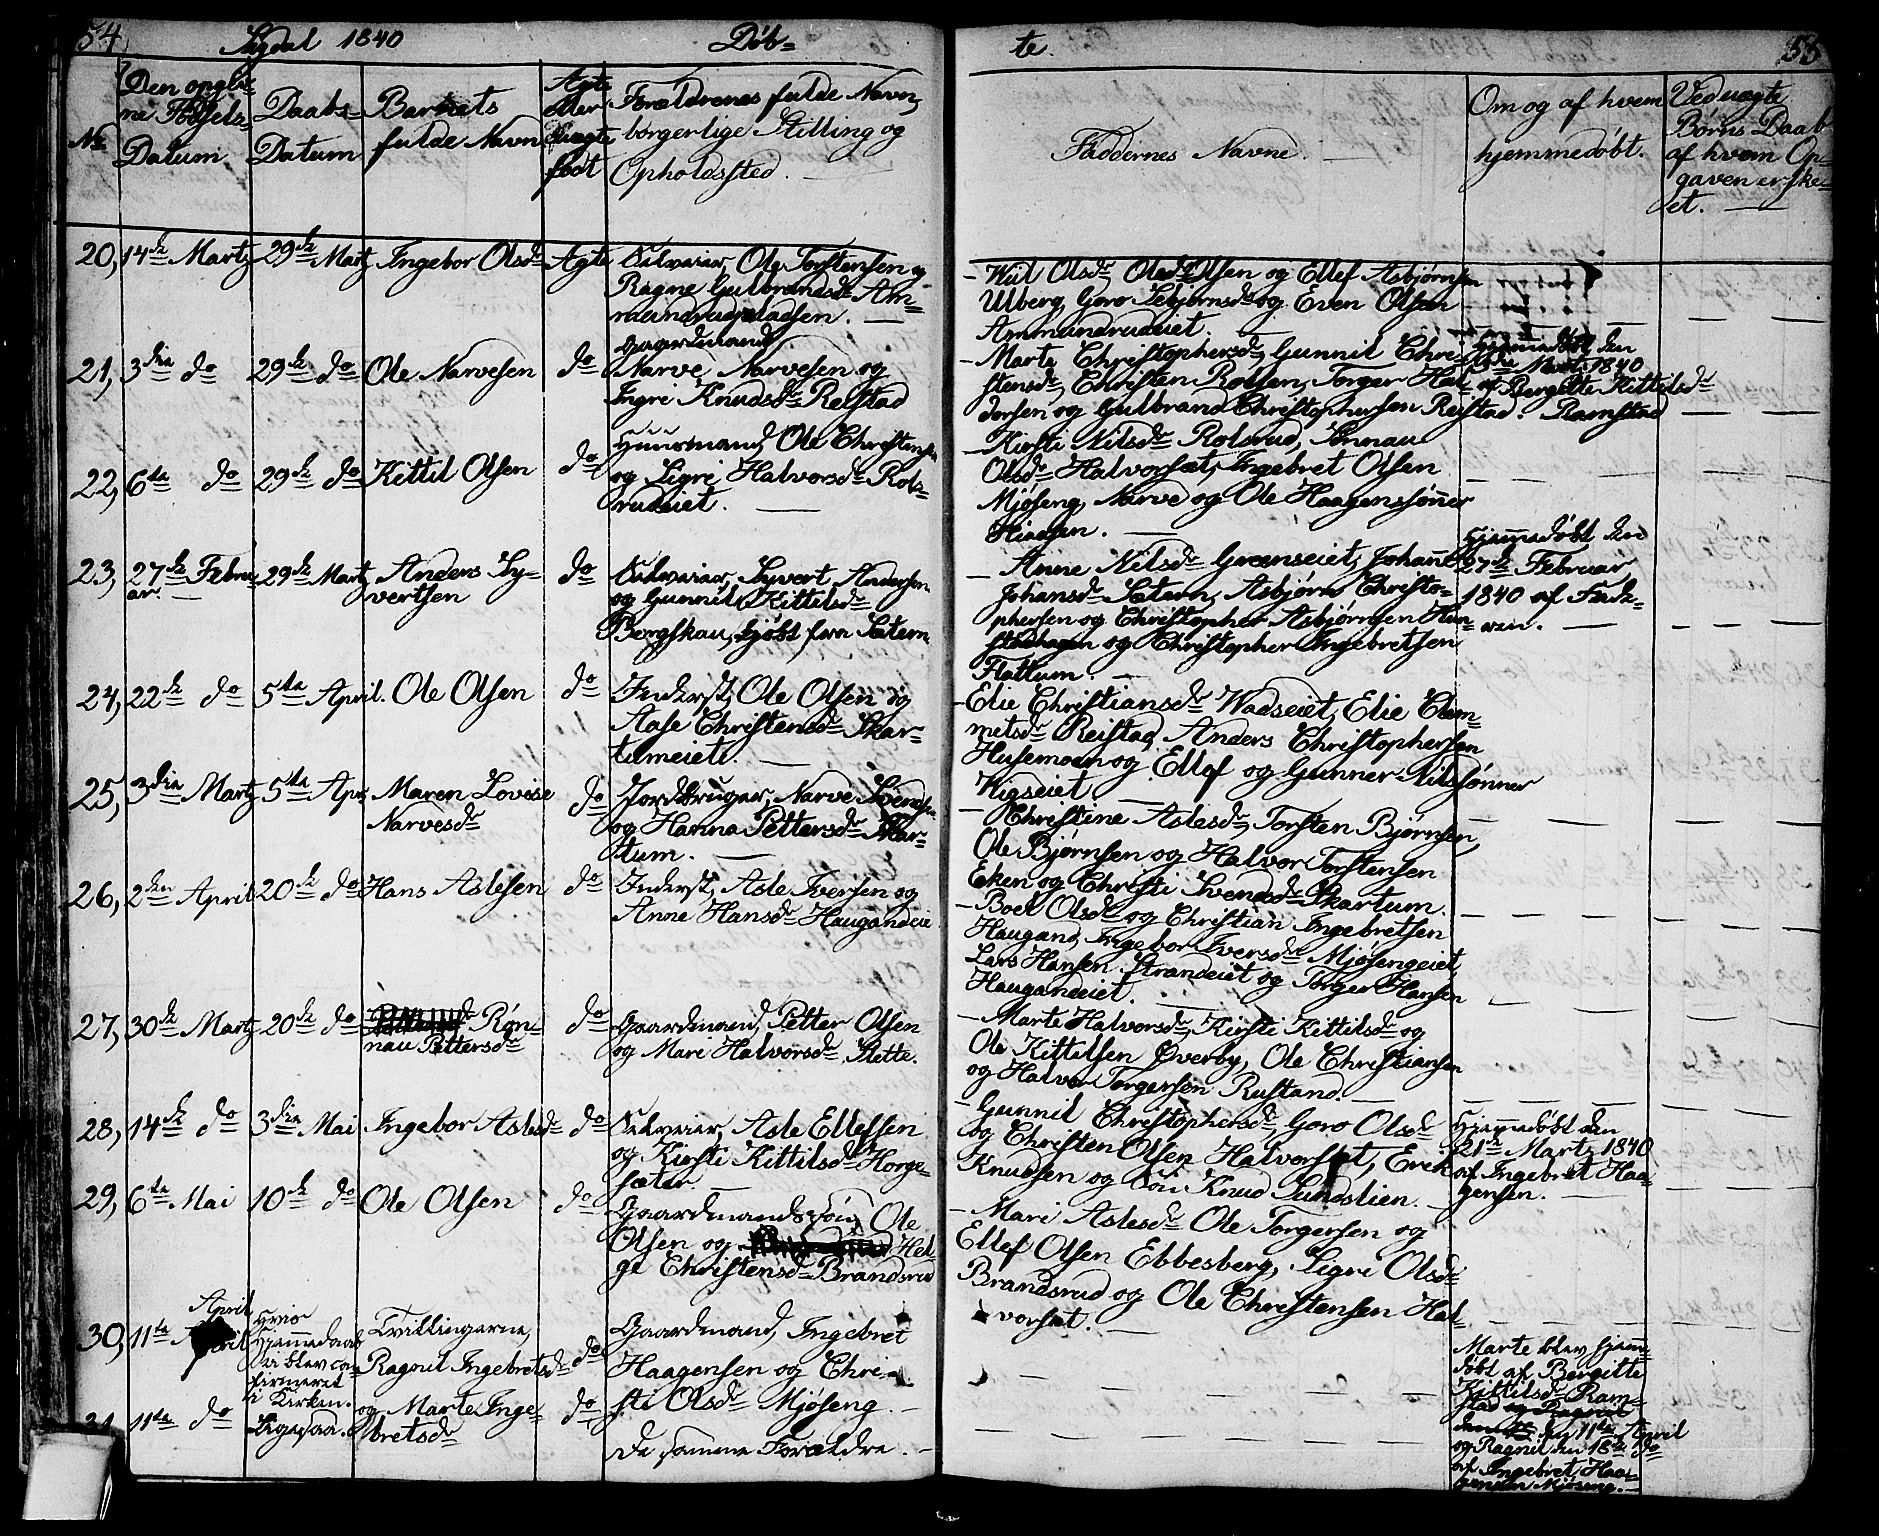 54
Sigdal 1840
Døb=
te.
55
No
Den opgiv-
ne Fødsels-
Datum.
Daabs-
Datum
Barnets
fulde Navn
Ægte
eller
Uægte
født
Forældrenes fulde Navn,
borgerlige Stilling og
Opholdssted.
Faddernes Navne.
Om og af hvem
hjemmedøbt.
Ved uægte
Børns Daab
af hvem Op-
gaven er ske-
et.
20, 14de Martz 29de Martz Ingebor Olsdr Ægte
Ole Torstensen og
Ragne Gulbrandsdr Am-
mundrudpladsen.
Olsdr, Ole Olsen og Ellef Asbjørnsen
Ulberg, Goro Sebjørnsdr og Even Olsen
Ammundrudeiet.
21, 3die do 29de do Ole Narvesen do
Gaardmand
Narve Narvesen og
Ingri Knudsdr Reistad
Marte Christophersdr, Gunnil Chri-
stensdr, Christen Rolsen, Torger Hal-
dorsen og Gulbrand Christophersen Reistad.
Hjemmedøbt den
Martz 1840
af Bergitte Kittilsdr
Ramstad
22, 6te do 29de do Kittil Olsen do
Huusmand, Ole Christensen
og Sigri Halvorsdr Rols-
rudeiet.
Kirsti Nilsdr Rolsrud, Sønnau
Olsdr Halvorsæt, Ingebret Olsen
Mjøseng, Narve og Ole Haagenssønner
23, 27de Febru- 29de Martz Anders Sy- do
ar. vertsen
Syvert Andersen
og Gunnil Kittilsdr
Bergskau, kjøbt fra Sætern
Anne Nilsdr Grønseiet, Johanne
Johansdr Sætern, Asbjørn Christo-
phersen og Christopher Asbjørnsen Hun-
stadhagen og Christopher Ingebretsen
Flattum.
Hjemmedøbt den
27de Februar
1840 af Fade-
ren.
24, 22de do 5te April. Ole Olsen do
Inderst, Ole Olsen og
Aase Christensdr Skar-
tumeiet.
Elie Christiansdr Wadseiet, Elie Clem-
metsdr Reistad, Anders Christophersen
Husemoen og Ellef og Gunner Nilssønner
Kigseiet
25, 3die Martz 5te Apr. Maren Lovise do
Narvesdr
Jordbruger, Narve Svendsen
og Hanna Pettersdr Skar-
tum.
Christine Aslesdr, Torsten Bjørnsen,
Ole Bjørnsen og Halvor Torstensen
Eken og Christi Svensdr Skartum.
26, 2den April 20de do Hans Aslesen do
Inderst, Asle Iversen og
Anne Hansdr Haugandeie
Boel Olsdr og Christian Ingebretsen
Haugand, Ingebor Iversdr Mjøsengeiet
Lars Hansen Strandeiet og Torger Hansen
Haugandeiet.
27, 30de Martz 20de do Røn- do
nau Pettersdr
Gaardmand, Petter Olsen
og Mari Halvorsdr Slette.
Marte Halvorsdr, Kirsti Kittilsdr og
Ole Kittilsen Øverby, Ole Christiansen
og Halvor Torgersen Rustand.
28, 14de do 3die Mai Ingebor Aslesdr do
Asle Ellefsen
og Kirsti Kittilsdr Horge-
sæter.
Gunnil Christophersdr, Goro Olsdr
og Christen Olsen Halvorsæt, Erik
Knudsen og Søn Knud Sundslien.
Hjemmedøbt den
21de Martz 1840
af Ingebret Haa-
gensen.
29, 6te Mai 10de do Ole Olsen do
Gaardmandssøn, Ole
Olsen og Hel-
ge Christensdr Brandsrud
Mari Aslesdr Ole Torgersen og
Ellef Olsen Ebbesberg, Sigri Olsdr
Brandsrud og Ole Christensen Hal-
vorsæt.
30, 11te April
Hvis
Hjemmedaab
er blev con-
firmeret
i Kirken.
Tvillingerne,
Ragnil Ingebretsdr do
Gaardmand, Ingebret
Haagensen og Chri-
sti Olsdr Mjøseng.
31, 11te do Ligesaa.
og Marte Inge- do
bretsdr
De samme Forældre.
Marte blev hjem-
døbt af Bergitte
Kittilsdr Ram-
stad
den 11te April
og Ragnil den 18de do
af Ingebret Haa-
gensen Mjøseng.